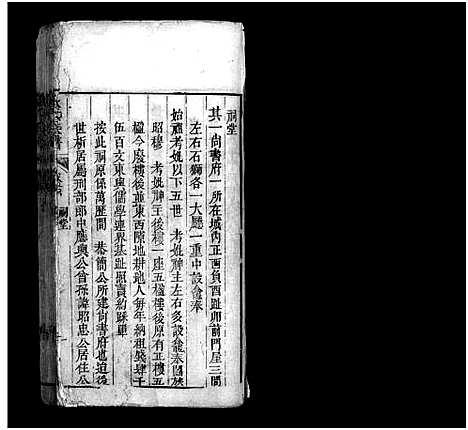 祠堂
其一尚書府一所在城内正西負酉趾卯前門屋三間
左右石獅各一大廳一重中設龕奉
始祖考妣以下五世 考妣神主左右多設龕奉闔族
昭穆 考妣神主後樓一座五楹樓後原有正樓五
楹今廢樓後並東西隙地耕地人每年納租錢肆千
伍百文東與儒學連界基趾原賣約縣單
按此祠原係萬歷間 恭簡公所建尚書府也迨後
世析居屬刑部郎中應奥公曾孫諱昭忠公居住公
祠堂